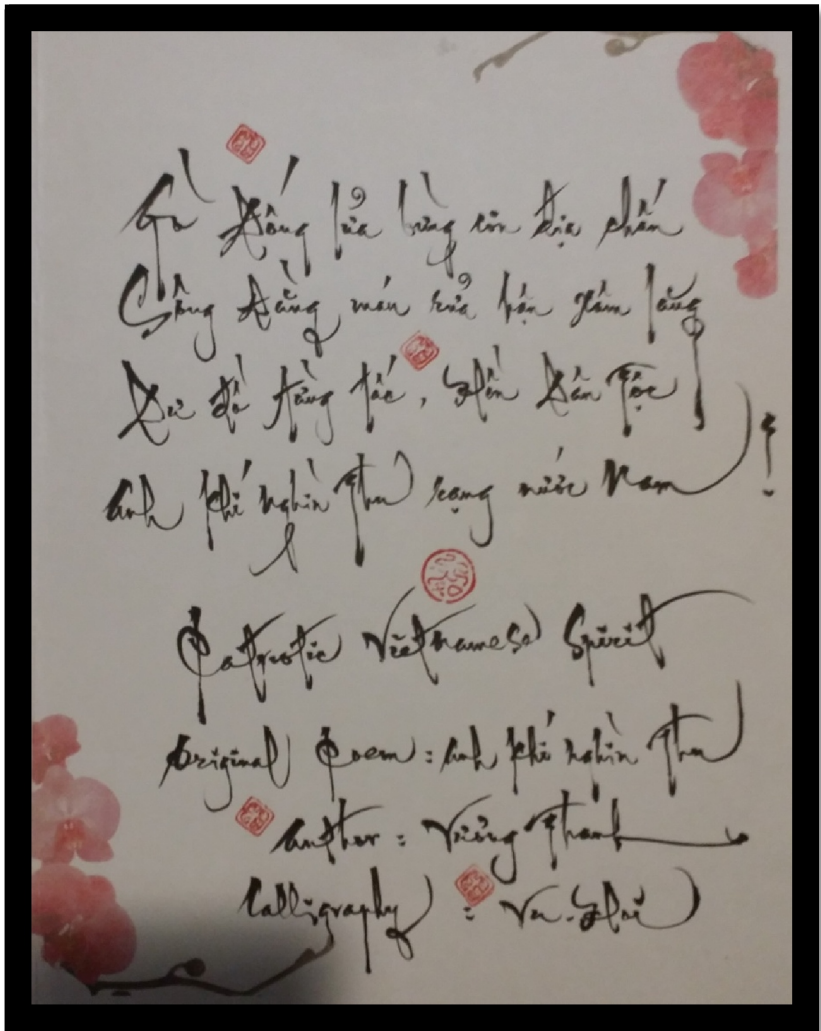 Gò Đống lửa bừng cơn địa chấn
Sông Đằng máu rửa hận xâm lăng
Dư đồ từng tấc, Hồn Dân Tộc
Anh khí nghìn Thu rạng nước Nam!
Patriotic Vietnamese Spirit
Original Poem: Anh khí nghìn Thu
Author: Vương Thanh
Calligraphy : Vũ. Hối